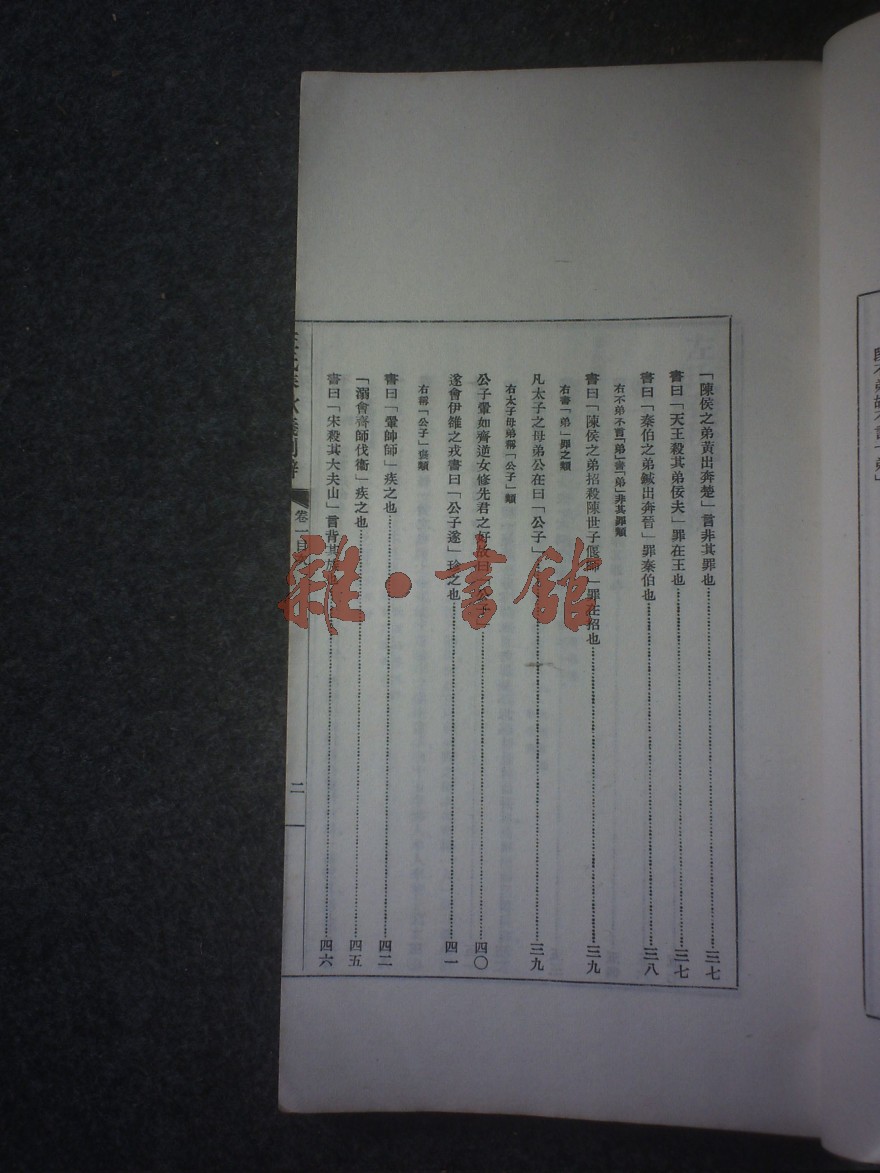 段不弟故不言「弟」
「陳侯之弟黃出奔楚」言非其罪也……三七
書曰「天王殺其弟佞夫」罪在王也……三七
書曰「秦伯之弟鍼出奔晉」罪秦伯也……三八
右不弟不書「弟」書「弟」非其罪類
書曰「陳侯之弟招殺陳世子偃師」罪在招也……三九
右書「弟」罪之類
凡太子之母弟公在曰「公子」……三九
右太子母弟稱「公子」類
公子翬如齊逆女修先君之好故曰「公子」……四〇
遂會伊雒之戎書曰「公子遂」珍之也……四一
右稱「公子」褒類
書曰「翬帥師」疾之也……四二
「溺會齊師伐衞」疾之也……四五
書曰「宋殺其大夫山」言背其族也……四六
卷一目
二
雜·書館